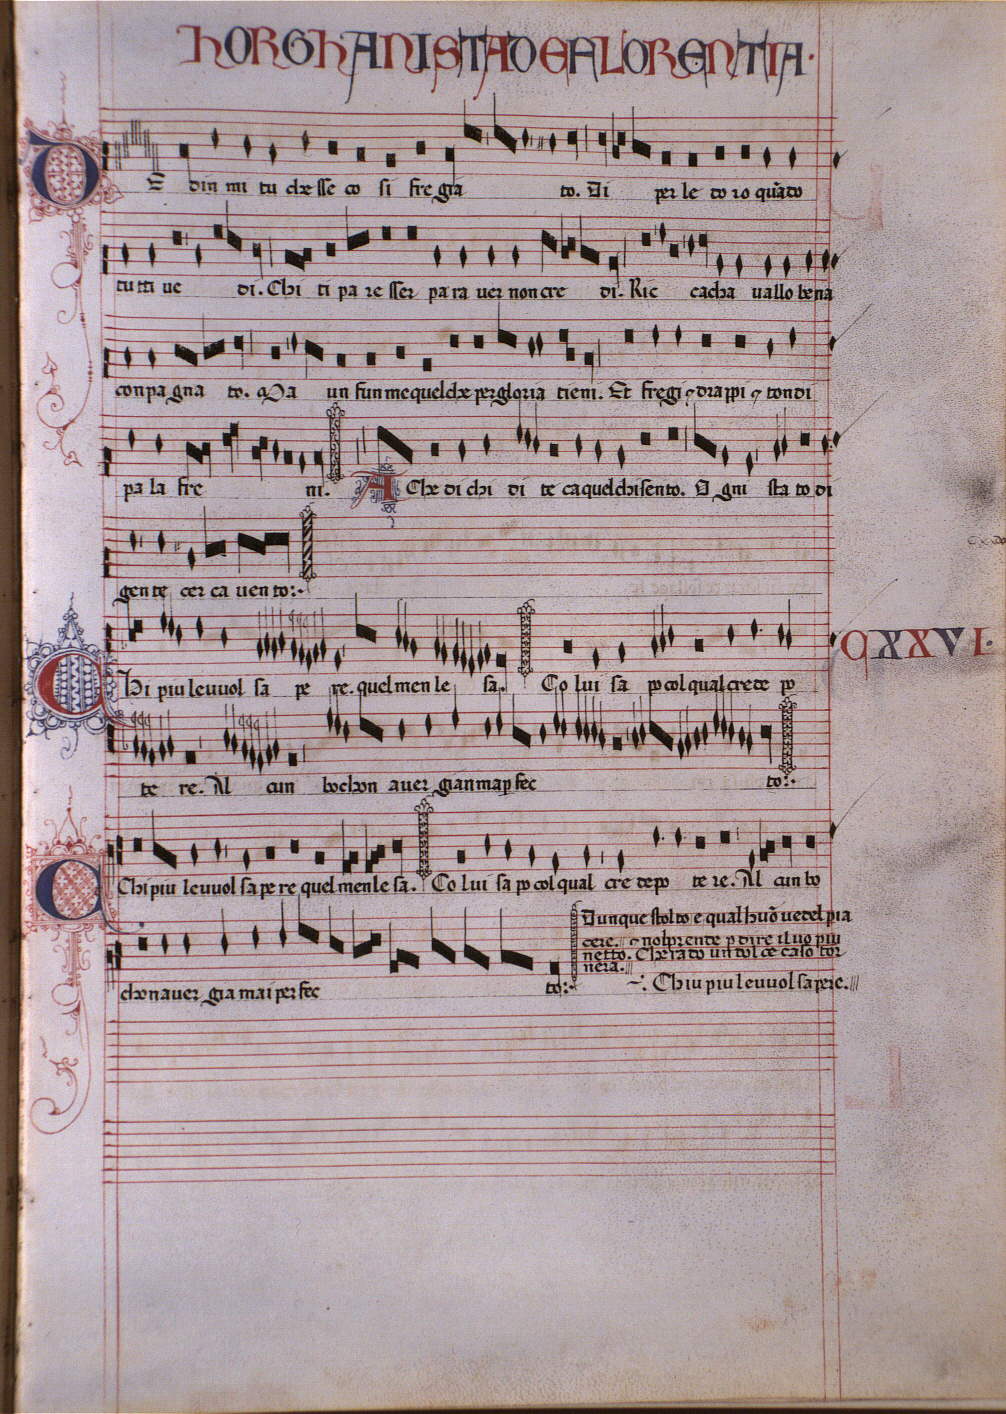 HORGHANISTA DE FLORENTIA·
DE din mi tu che sse co si fre gia to. Di per le to ro quãto
tutti ve di. Chi ti pa re sser pa ra ver non cre di. Ric cacha vallo bena
conpa gna to. Ma un fun me quel che per gloria tieni. Et fregi ⁊ drappi ⁊ tondi
pa la fre ni. A Che di chi di te ca quel chi sento. O gni sta to di
gente cer ca ven to:·
CHi piu le vuol sa pe re. quel men le sa. Co lui sa po col qual crede po
CXXVI·
te re. Al cun bo chon aver gian map fec to:·
Chi piu le vuol sa pe re quel men le sa. Co lui sa po col qual cre de po te re. Al cun bo
chon aver gia mai per fec to:·
Dunque stolto e qual huõ vedel pia
cere. ⁊ nol prende p dire il vo piu
netto. Che rado un dolce caso tor
nera.
Chiu piu le vuol sapere.